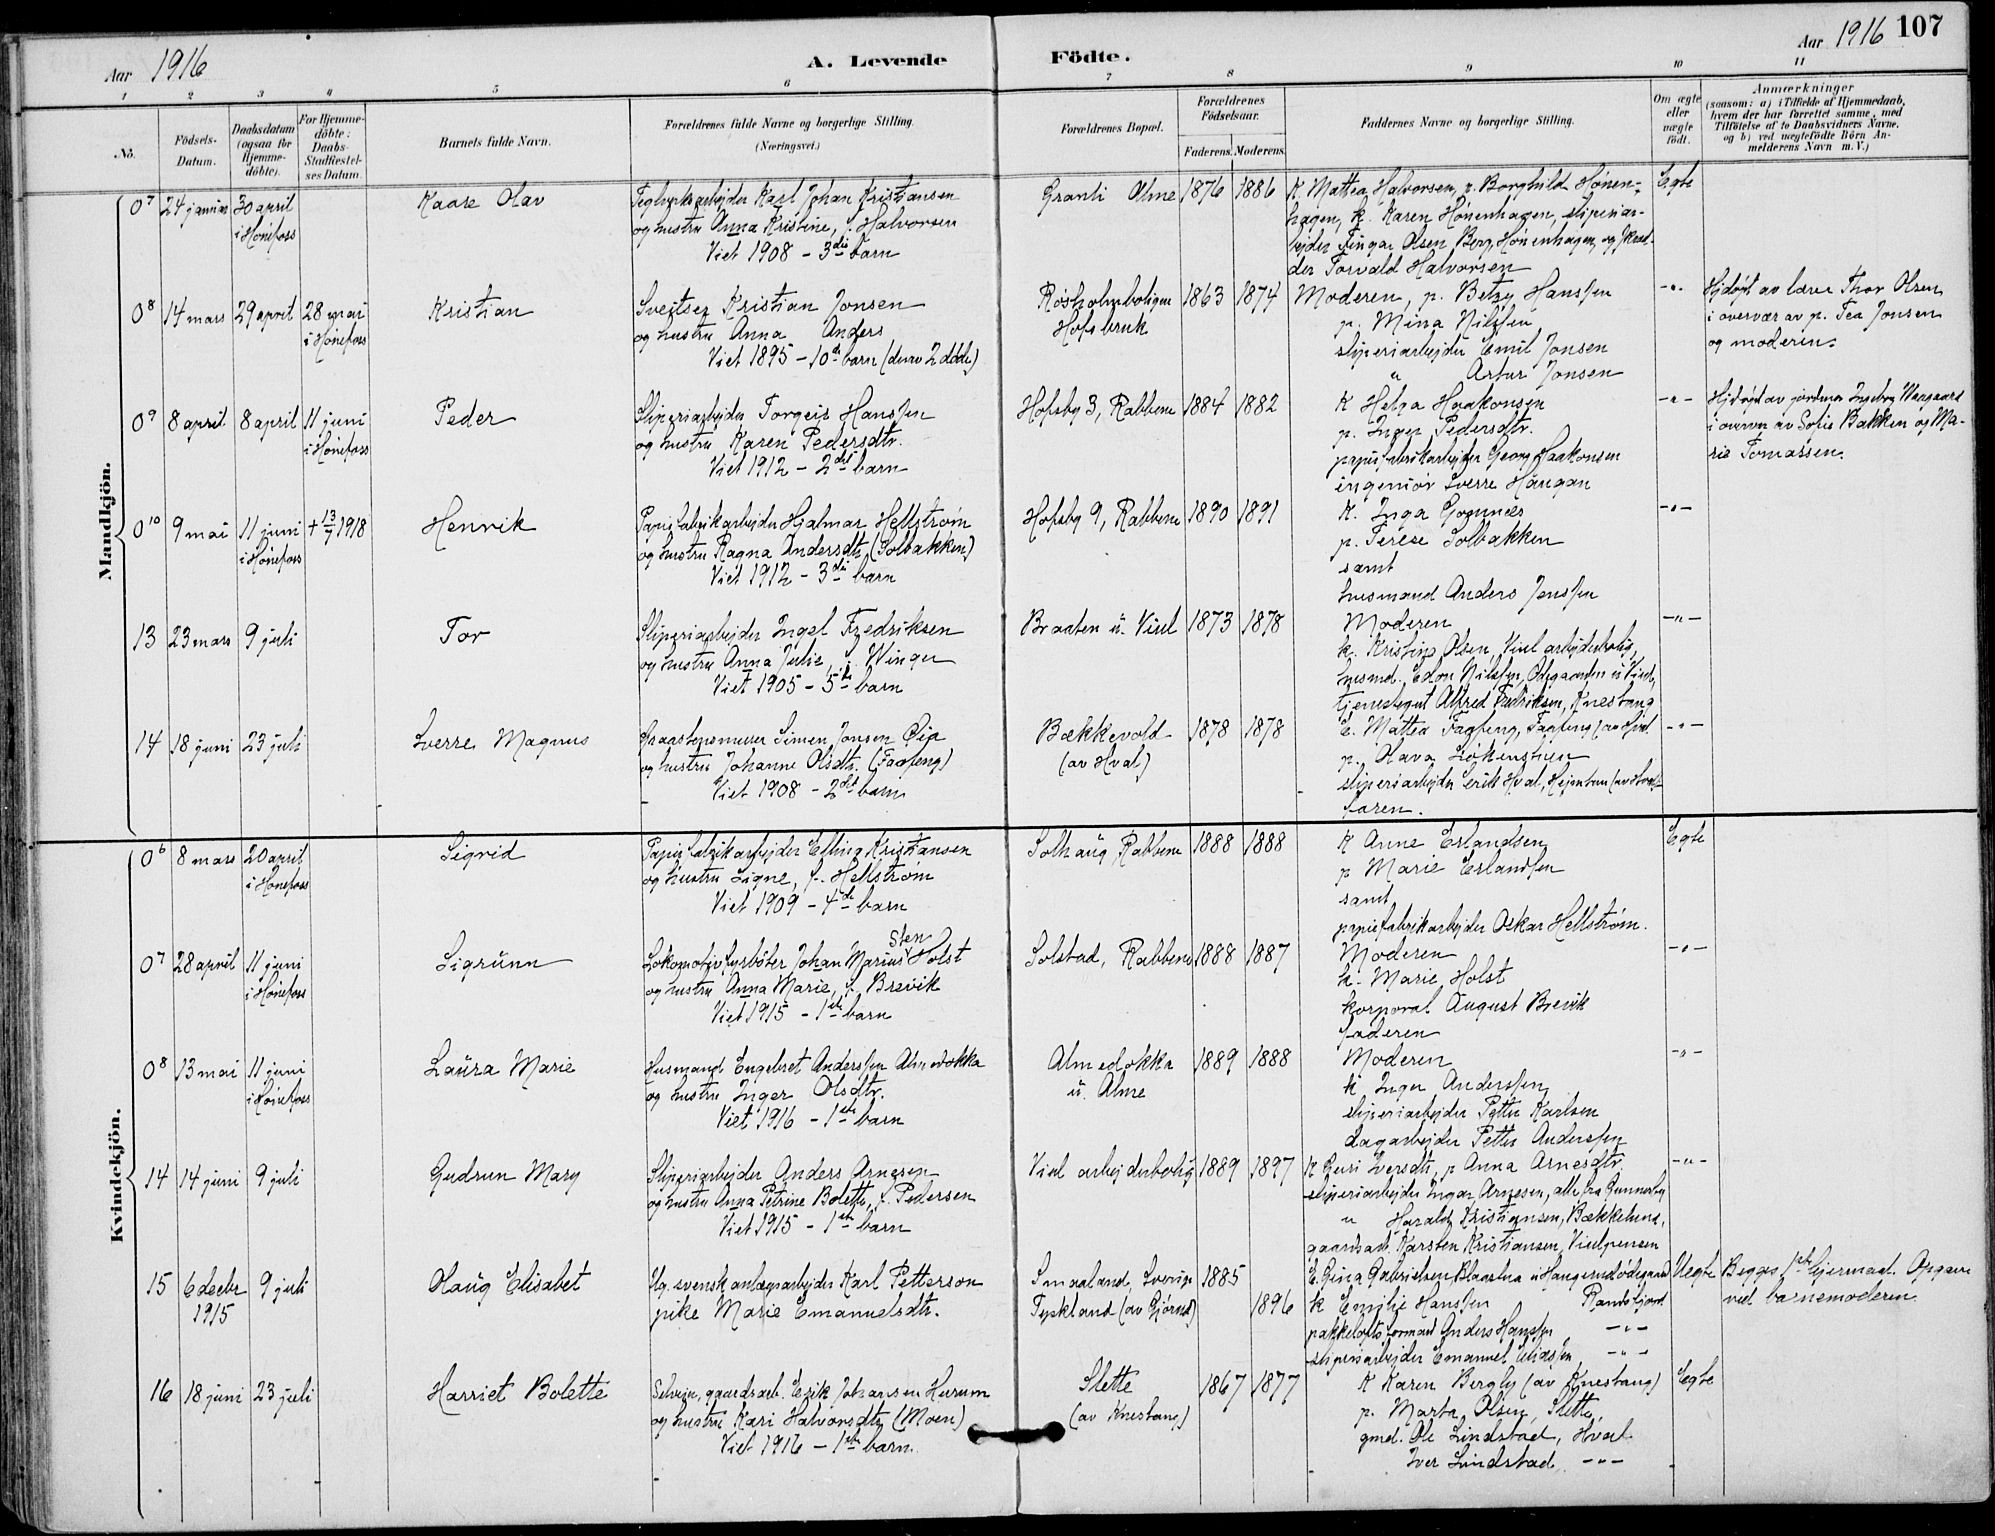 Aar 1916
A. Levende
Födte.
Aar 1916 107
1 2 3 4 5 6 7 8 9 10 11
No.
Födsels-
Datum.
Daabsdatum
(ogsaa for
Hjemme-
döbte).
For Hjemme-
döbte:
Daabs-
Stadfæstel-
ses Datum.
Barnets fulde Navn.
Forældrenes fulde Navne og borgerlige Stilling.
(Næringsvei.)
Forældrenes Bopæl.
Forældrenes
Födselsaar.
Faderens. Moderens.
Faddernes Navne og borgerlige Stilling.
Om ægte
eller
uægte
födt.
Anmærkninger
(saasom: a) i Tilfælde af Hjemmedaab,
hvem der har forrettet samme, med
Tilföielse af to Daabsvidners Navne,
og b) ved uægtefödte Börn An-
melderens Navn m. V.)
Mandkjön.
07
24 januar
30 april
i Hönefoss
Kaare Olav
Teglverksarbeider Karl Johan Kristiansen
og hustru Anna Kristine, f. Halvorsen
Viet 1908 - 3die barn
Granli Alme
1876 1886
K. Mattea Halvorsen, p. Borghild Hönen-
hagen, k. Karen Hönenhagen, sliperiar-
beider Fingar Olsen Berg, Hönenhagen, og skræd-
der Torvald Halvorsen
Egte
08
14 mars
29 april
28 mai
i Hönefoss
Kristian
Sveitser Kristian Jonsen
og hustru Anna Anders
Viet 1895 - 10de barn (derav 2 döde)
Rösholmboligen
Hofsbruk
1863 1874
Moderen, p. Betzy Hanssen
p. Mina Nilssen
sliperiarbeider Emil Jonsen
" Artur Jonsen
-"-
Hjdöpt av lærer Thor Olsen
i overvær av p. Tea Jonsen
og moderen.
09
8 april
8 april
11 juni
i Hönefoss
Peder
Sliperiarbeider Torgeir Hanssen
og hustru Karen Pedersdtr.
Viet 1912 - 2det barn
Hofsby 3, Rabbene
1884 1882
K Helga Haakonsen
p. Inger Pedersdtr.
papirfabrikarbeider Georg Haakonsen
ingeniör Sverre Haugan
-"-
Hjdöpt av jordmor Ingeborg
i overvær av Sofie Bakken og Ma-
rie Tomassen.
010
9 mai
11 juni
i Hönefoss
+ 13/7 1918
Henrik
Papirfabrikarbeider Hjalmar Hellström
og hustru Ragna Andersdtr. (Solbakken)
Viet 1912 - 3die barn
Hofsby 9, Rabbene
1890 1891
K. Inga
p. Terese Solbakken
samt
husmand Anders Jenssen
-"-
13
23 mars
9 juli
Tor
Sliperiarbeider Ingel Fredriksen
og hustru Anna Julie, f. Winger
Viet 1905 - 5te barn
Braaten u. Viul
1873 1878
Moderen
k. Kristine Olsen, Viul arbeiderbolig,
husmd. Edon Nilssen, Odegaarden u Viul,
tjenestegut Alfred Fredriksen, Knestang
-"-
14
18 juni
23 juli
Sverre Magnus
Graastensmurer Simen Jonsen Öia
og hustru Johanne Olsdtr. (Fagfeng)
Viet 1908 - 2det barn
Bækkevold
(av Hval)
1878 1878
E. Mattea Fagfeng, Fagfeng (av Hval
p. Olava Lökenstuen
sliperiarbeider Erik Hval, (av Hval
faren.
-"-
Kvindekjön.
06
8 mars
20 april
i Hönefoss
Sigrid
Papirfabrikarbeider Elling Kristiansen
og hustru Signe, f. Hellström
Viet 1909 - 4de barn
Solhaug, Rabbene
1888 1888
K Anne Erlandsen
p Marie Erlandsen
samt
papirfabrikarbeider Oskar Hellström.
Egte
07
28 april
11 juni
i Hönefoss
Sigrunn
Lokomotivfyrböter Johan Marius Sten Holst
og hustru Anna Marie, f. Brevik
Viet 1915 - 1ste barn
Solstad, Rabbene
1888 1887
Moderen
k. Marie Holst
korporal August Brevik
faderen
-"-
08
13 mai
11 juni
i Hönefoss
Laura Marie
Husmand Engebret Anderssen Almedokka
og hustru Inger Olsdtr.
Viet 1916 - 1ste barn
Almedokka
u. Alme
1889 1888
Moderen
k Inger Anderssen
sliperiarbeider Petter Karlsen
dagarbeider Petter Anderssen
-"-
14
14 juni
9 juli
Gudrun Mary
Sliperiarbeider Anders Arnesen
og hustru Anna Petrine Bolette, f. Pedersen
Viet 1915 - 1ste barn
Viul arbeiderbolig
1889 1897
K Guri Iversdtr, p Anna Arnesdtr.
sliperiarbeider Ingar Arnesen, alle fra Gunnerby
" Harald Kristiansen, Bækkelund,
gaardsarb. Karsten Kristiansen, Viulpensen
-"-
15
6 decbr
1915
9 juli
Olaug Elisabet
Ug. svensk anlægsarbeider Karl Petterson
pike Marie Emanuelsdtr.
Smaaland, Sverige
Tyskland (av Gjörud)
1885
1896
E. Gina Gabrielsen u Haugerudödegaard
k Emilie Hanssen Randsfjord
pakkelofts formand Anders Hanssen -"-
sliperiarbeider Emanuel Eliassen -"-
Uegte
Begges 1ste leiermaal. Opgave
ved barnemoderen.
16
18 juni
23 juli
Harriet Bolette
Selveier, gaardsarb. Erik Johansen Hurum
og hustru Kari Halvorsdtr (Moen)
Viet 1916 - 1ste barn.
Slette
(av Knestang)
1867 1877
K Karen Bergly (av Knestang)
p. Marta Olsen, Slette,
gmd. Ole Lindstad, Hval
Iver Lindstad -"-
Egte